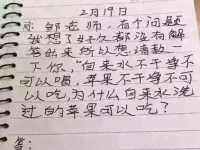 2月19日
问:邹老师,有个问题
我想了好久都没有解
答出来所以想请教一
下你,“自来水不干净不
可以喝,苹果不干净不可
以吃,为什么自来水洗
过的苹果可以吃?
答: